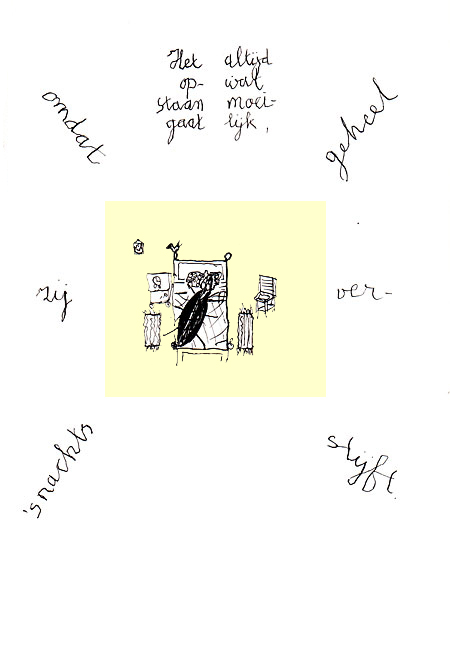 Het altijd
op- wat
staan moei-
gaat lijk,
omdat
zij
'snachts
geheel
ver-
stijft.